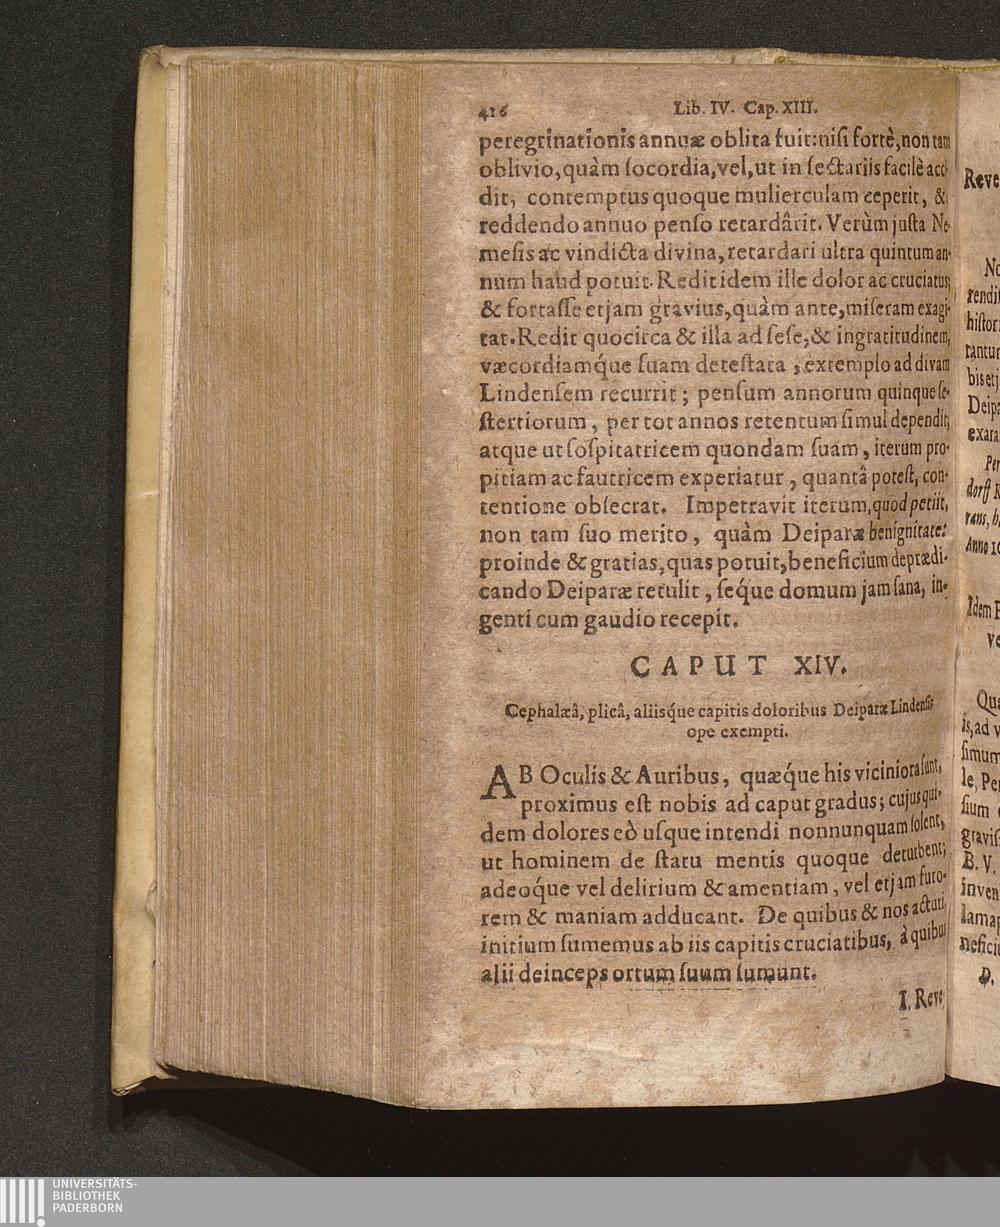 416 Lib. IV. Cap. XIII.
peregrinationis annuæ oblita fuit: nisi fortè, non tam
oblivio, quàm socordia, vel, ut in sectariis facilè acci-
dit, contemptus quoque mulierculam ceperit, &
reddendo annuo penso retardârit. Verùm justa Ne-
mesis ac vindicta divina, retardari ultra quintum an-
num haud potuit. Redit idem ille dolor ac cruciatus;
& fortasse etjam gravius, quàm ante, miseram exagi-
tat. Redit quocirca & illa ad sese, & ingratitudinem,
væcordiamq́ue suam detestata, extemplo ad divam
Lindensem recurrit; pensum annorum quinque se-
stertiorum, per tot annos retentum simul dependit,
atque ut sospitatricem quondam suam, iterum pro-
pitiam ac fautricem experiatur, quantâ potest, con-
tentione obsecrat. Impetravit iterum, quod petiit,
non tam suo merito, quàm Deiparæ benignitate:
proinde & gratias, quas potuit, beneficium deprædi-
cando Deiparæ retulit, seq́ue domum jam sana, in-
genti cum gaudio recepit.
CAPUT XIV.
Cephalæâ, plicâ, aliisq́ue capitis doloribus Deiparæ Lindensis
ope exempti.
AB Oculis & Auribus, quæq́ue his viciniora sunt,
proximus est nobis ad caput gradus; cujus qui-
dem dolores eò usque intendi nonnunquam solent,
ut hominem de statu mentis quoque deturbent;
adeoq́ue vel delirium & amentiam, vel etjam furo-
rem & maniam adducant. De quibus & nos acturi,
initium sumemus ab iis capitis cruciatibus, à quibus
alii deinceps ortum suum sumunt.
I. Reve
Reve
No
rendis
histor
tantur
bis etj
Deipa
exara
Per
dorff K
rans, h
Anno 16
Idem P
ve
Qua
is, ad v
simum
le, Per
sium
gravis
B. V.
inven
lamap
neficiu
D.
UNIVERSITÄTS-
BIBLIOTHEK
PADERBORN